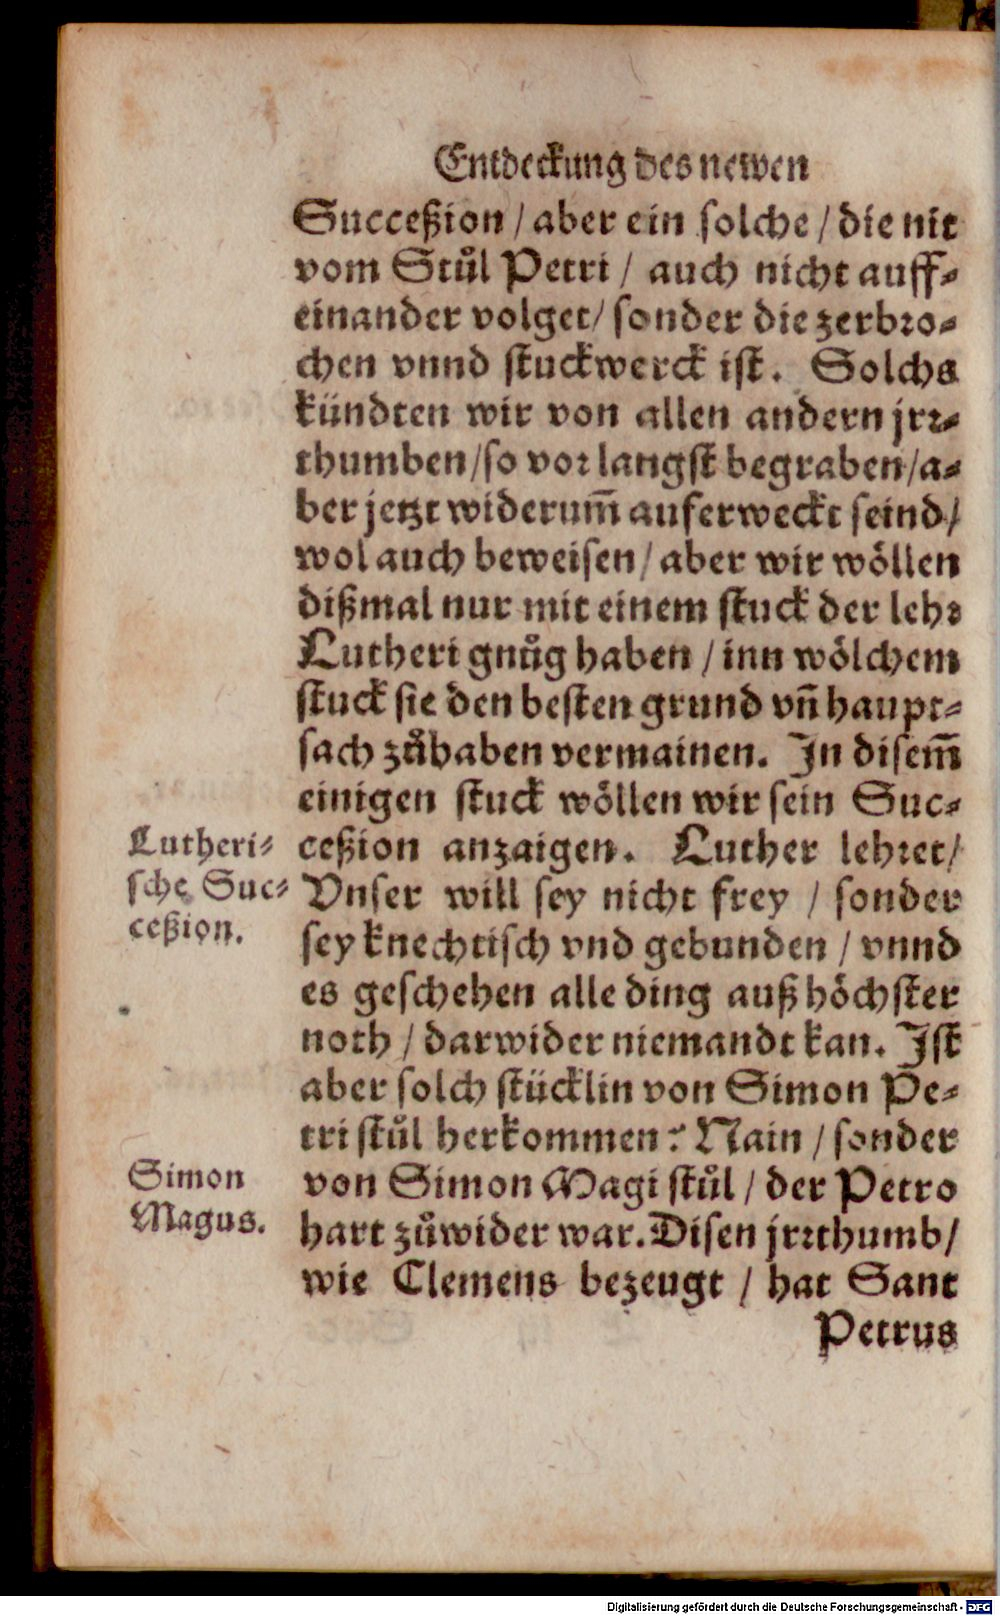 Entdeckung des newen
Succeßion / aber ein solche / die nit
vom Stůl Petri / auch nicht auff-
einander volget / sonder die zerbro-
chen vnnd stuckwerck ist. Solchs
kündten wir von allen andern jrr-
thumben / so vor langst begraben / a-
ber jetzt widerum̃ auferweckt seind /
wol auch beweisen / aber wir wöllen
dißmal nur mit einem stuck der lehr
Lutheri gnůg haben / inn wölchem
stuck sie den besten grund vñ haupt-
sach zůhaben vermainen. In disem̃
einigen stuck wöllen wir sein Suc-
ceßion anzaigen. Luther lehret /
Vnser will sey nicht frey / sonder
sey knechtisch vnd gebunden / vnnd
es geschehen alle ding auß höchster
noth / darwider niemandt kan. Ist
aber solch stücklin von Simon Pe-
tri stůl herkommen? Nain / sonder
von Simon Magi stůl / der Petro
hart zůwider war. Disen jrrthumb /
wie Clemens bezeugt / hat Sant
Petrus
Lutheri-
sche Suc-
ceßion.
Simon
Magus.
Digitalisierung gefördert durch die Deutsche Forschungsgemeinschaft - DFG